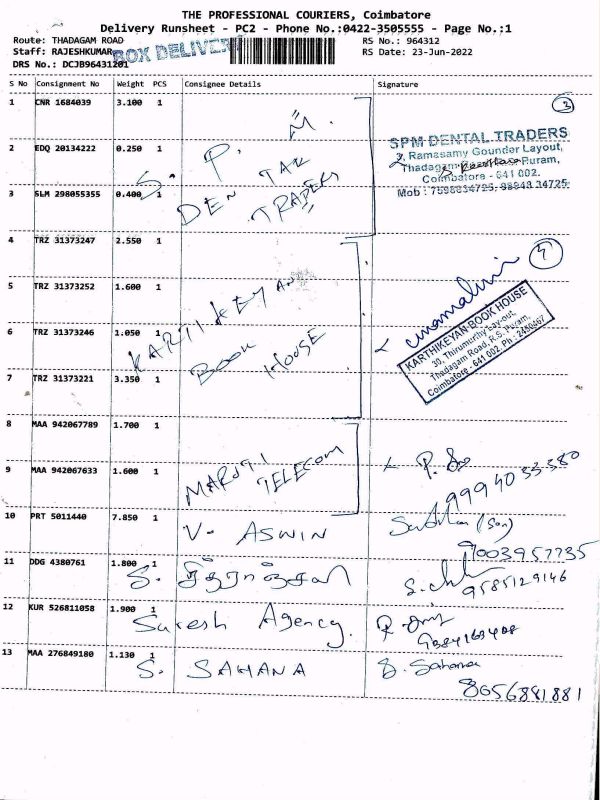 THE PROFESSIONAL COURIERS, Coimbatore
Delivery Runsheet - PC2 - Phone No.:0422-3505555 - Page No.:1
Route: THADAGAM ROAD
RS No.: 964312
Staff: RAJESHKUMAR
BOX DELIVERY
RS Date: 23-Jun-2022
DRS No.: DCJB96431201
S No Consignment No Weight PCS Consignee Details Signature
1 CNR 1684039 3.100 1
3
2 EDQ 20134222 0.250 1
S. P. M.
DENTAL
TRADERS
SPM DENTAL TRADERS
Ramasamy Gounder Layout,
Coimbatore - 641 002.
3 SLM 298055355 0.400 1
4 TRZ 31373247 2.550 1
4
5 TRZ 31373252 1.600 1
KARTHIKEYAN
BOOK HOUSE
KARTHIKEYAN BOOK HOUSE
30, Thirumurthy Lay-out,
Thadagam Road, R.S. Puram,
Coimbatore - 641 002. Ph : 2450667
6 TRZ 31373246 1.050 1
7 TRZ 31373221 3.350 1
8 MAA 942067789 1.700 1
MARUTI
TELECOM
9 MAA 942067633 1.600 1
9994033380
10 PRT 5011440 7.850 1
V. ASWIN
(Son)
7003957735
11 DDG 4380761 1.800 1
S.
9585129146
12 KUR 526811058 1.900 1
Suresh Agency.
13 MAA 276849180 1.130 1
S. SAHANA
S. Sahana
8056881881